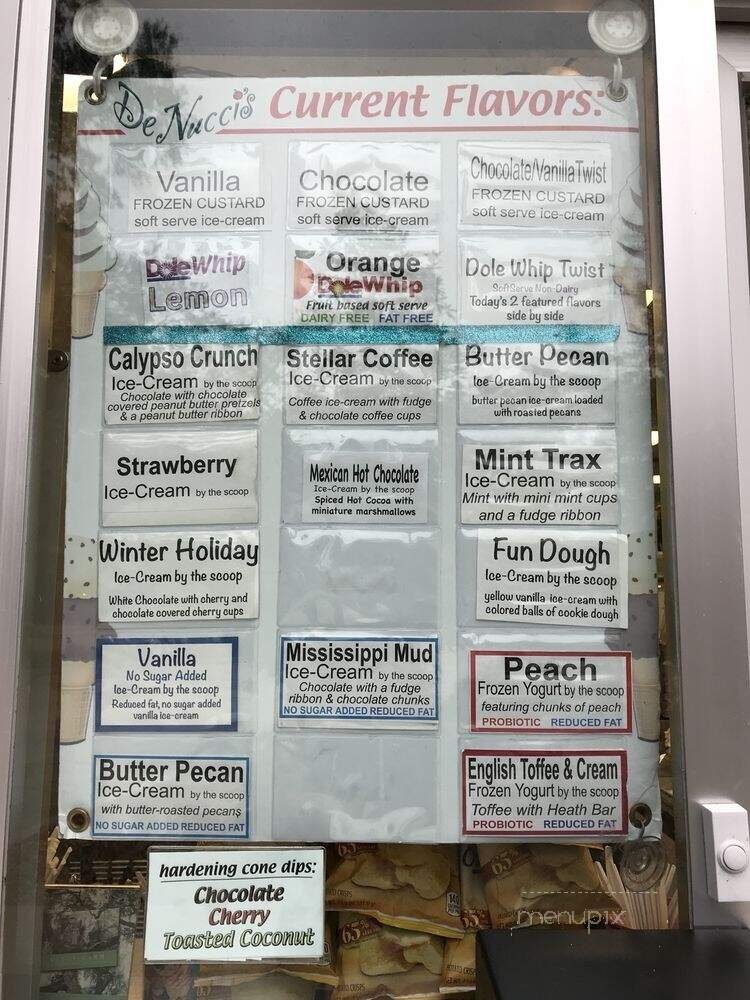 DeNucci's Current Flavors:
Vanilla
FROZEN CUSTARD
soft serve ice-cream
Chocolate
FROZEN CUSTARD
soft serve ice-cream
Chocolate/Vanilla Twist
FROZEN CUSTARD
soft serve ice-cream
DoleWhip
Lemon
Orange
DoleWhip
Fruit based soft serve
DAIRY FREE FAT FREE
Dole Whip Twist
Soft Serve Non-Dairy
Today's 2 featured flavors
side by side
Calypso Crunch
Ice-Cream by the scoop
Chocolate with chocolate
covered peanut butter pretzels
& a peanut butter ribbon
Stellar Coffee
Ice-Cream by the scoop
Coffee ice-cream with fudge
& chocolate coffee cups
Butter Pecan
Ice-Cream by the scoop
butter pecan ice-cream loaded
with roasted pecans
Strawberry
Ice-Cream by the scoop
Mexican Hot Chocolate
Ice-Cream by the scoop
Spiced Hot Cocoa with
miniature marshmallows
Mint Trax
Ice-Cream by the scoop
Mint with mini mint cups
and a fudge ribbon
Winter Holiday
Ice-Cream by the scoop
White Chocolate with cherry and
chocolate covered cherry cups
Fun Dough
Ice-Cream by the scoop
yellow vanilla ice-cream with
colored balls of cookie dough
Vanilla
No Sugar Added
Ice-Cream by the scoop
Reduced fat, no sugar added
vanilla ice-cream
Mississippi Mud
Ice-Cream by the scoop
Chocolate with a fudge
ribbon & chocolate chunks
NO SUGAR ADDED REDUCED FAT
Peach
Frozen Yogurt by the scoop
featuring chunks of peach
PROBIOTIC REDUCED FAT
Butter Pecan
Ice-Cream by the scoop
with butter-roasted pecans
NO SUGAR ADDED REDUCED FAT
English Toffee & Cream
Frozen Yogurt by the scoop
Toffee with Heath Bar
PROBIOTIC REDUCED FAT
hardening cone dips:
Chocolate
Cherry
Toasted Coconut
menupix